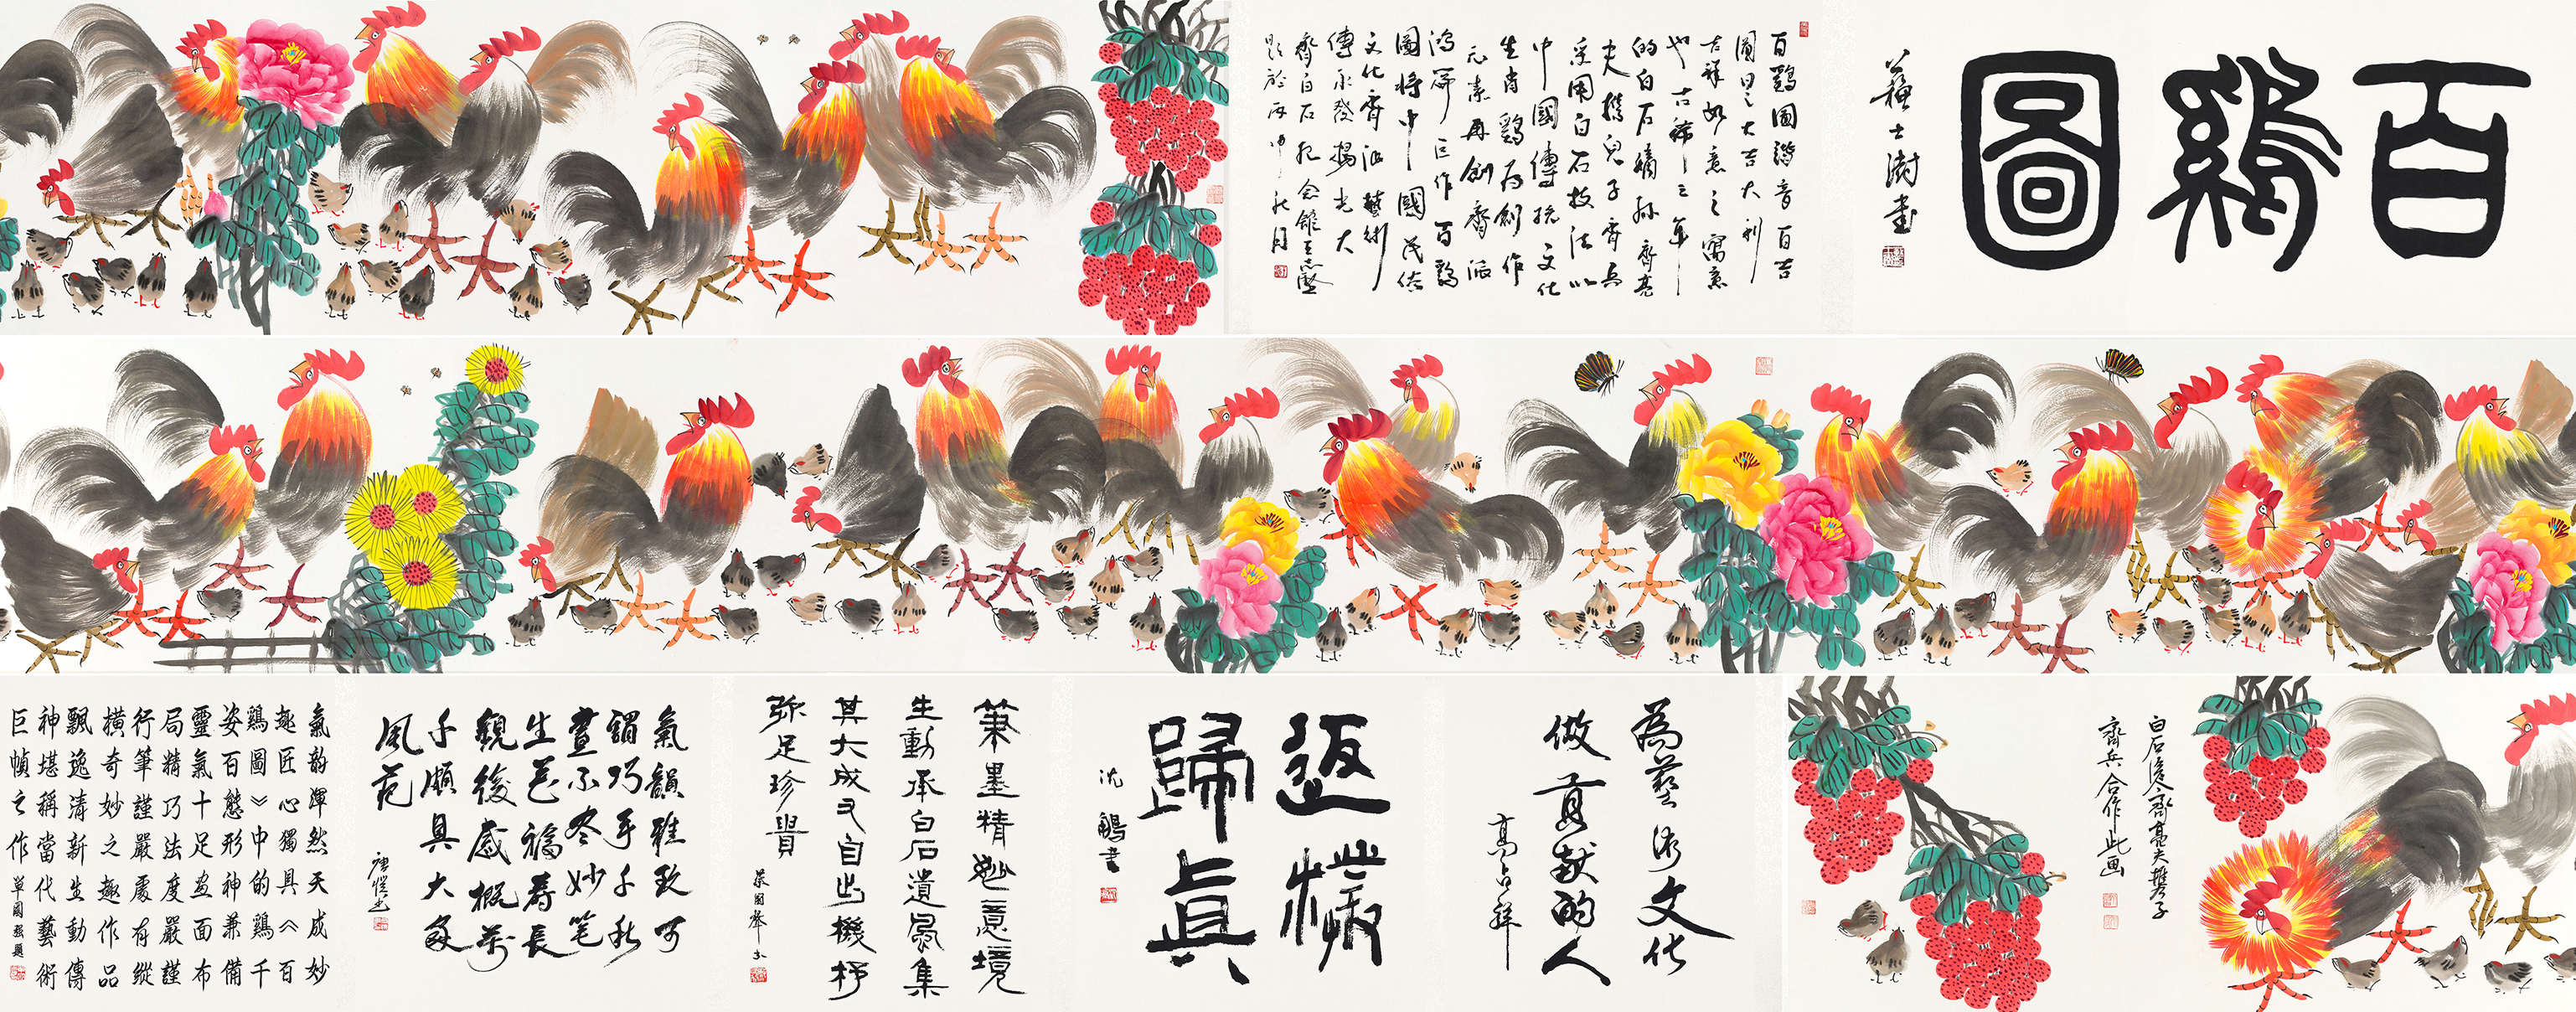 百鷄圖
蘇士澍書
百鷄圖諧音百吉
圖日之大吉大利
吉祥如意之寓意
也古稀之年
的白石嫡孫齊亮
夫携兒子齊兵
采用白石技法以
中國傳統文化
生肖鷄为創作
元素再創齊派
鴻篇巨作百鷄
圖将中國民俗
文化齊派藝術
傳承發揚光大
齊白石纪念館王志堅
題於丙申秋月
白石後人齊亮夫携子
齊兵合作此画
為藝術文化
做貢献的人
高占祥
返樸
歸真
沈鵬書
筆墨精妙意境
生動承白石遺風集
其大成又自出機杼
弥足珍貴
氣韻雅致可
謂巧手千秋
畫不尽妙笔
生花福寿長
觀後感概万
千頗具大家
風范
氣韵渾然天成妙
趣匠心獨具《百
鷄圖》中的鷄千
姿百態形神兼備
靈氣十足画面布
局精巧法度嚴謹
行筆謹嚴處有縱
橫奇妙之趣作品
飄逸清新生動傳
神堪稱當代藝術
巨幀之作 單國強題